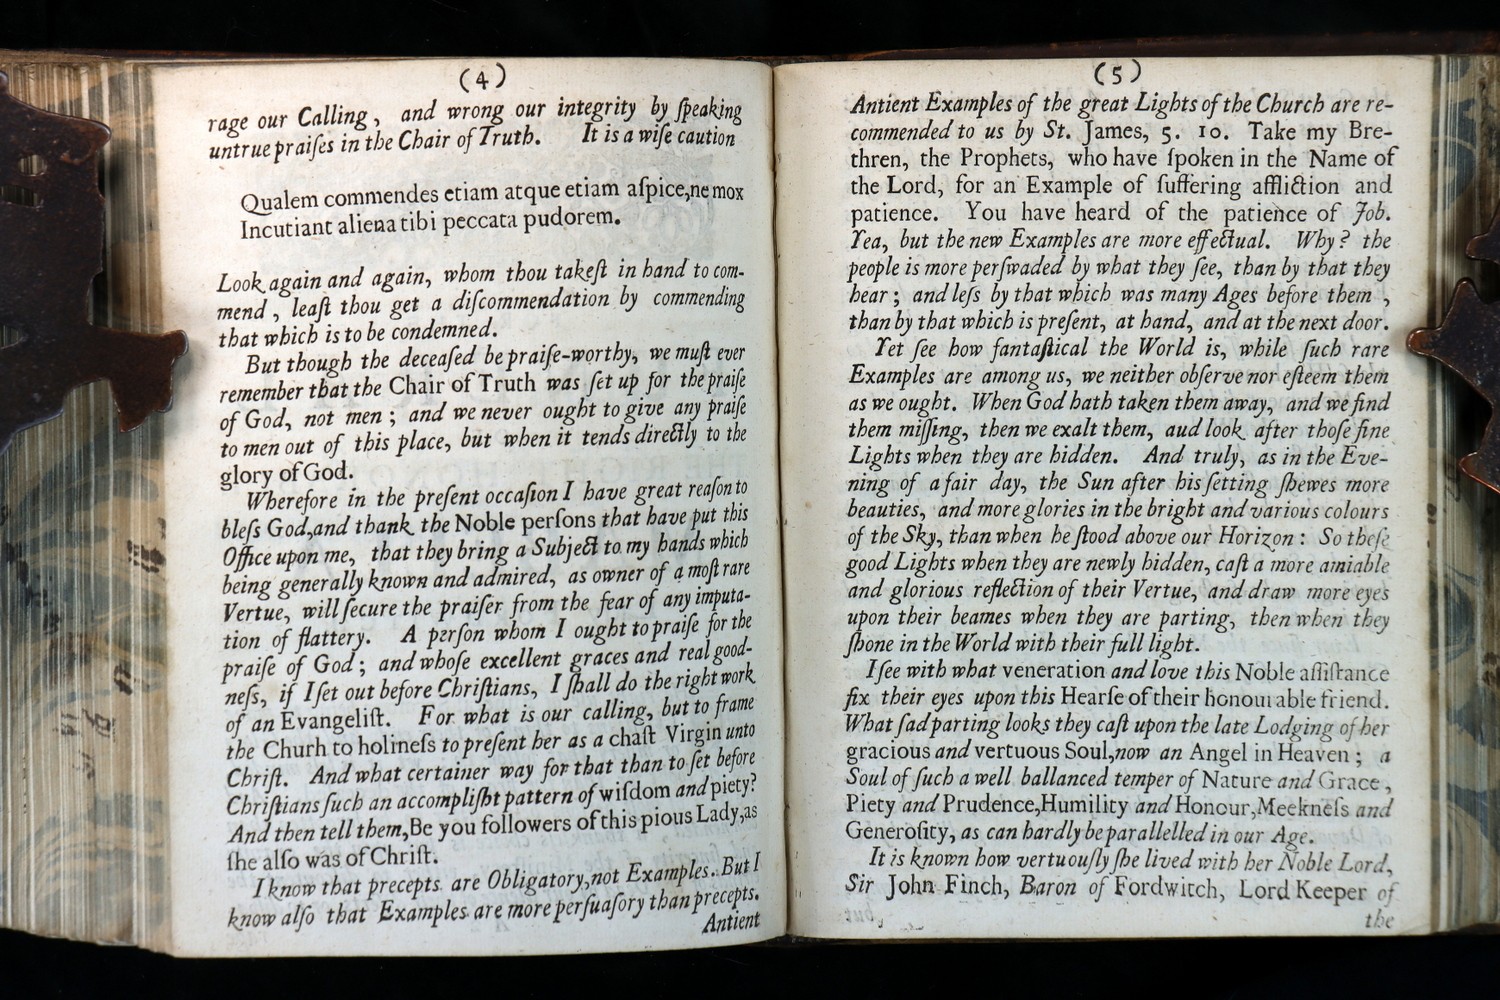 (4)
rage our Calling, and wrong our integrity by ſpeaking
untrue praiſes in the Chair of Truth. It is a wiſe caution
Qualem commendes etiam atque etiam aſpice,ne mox
Incutiant aliena tibi peccata pudorem.
Look again and again, whom thou takeſt in hand to com-
mend, leaſt thou get a diſcommendation by commending
that which is to be condemned.
But though the deceaſed be praiſe-worthy, we muſt ever
remember that the Chair of Truth was ſet up for the praiſe
of God, not men; and we never ought to give any praiſe
to men out of this place, but when it tends directly to the
glory of God.
Wherefore in the preſent occaſion I have great reaſon to
bleſs God,and thank the Noble perſons that have put this
Office upon me, that they bring a Subject to my hands which
being generally known and admired, as owner of a moſt rare
Vertue, will ſecure the praiſer from the fear of any imputa-
tion of flattery. A perſon whom I ought to praiſe for the
praiſe of God; and whoſe excellent graces and real good-
neſs, if I ſet out before Chriſtians, I ſhall do the right work
of an Evangeliſt. For what is our calling, but to frame
the Churh to holineſs to preſent her as a chaſt Virgin unto
Chriſt. And what certainer way for that than to ſet before
Chriſtians ſuch an accompliſht pattern of wiſdom and piety?
And then tell them,Be you followers of this pious Lady,as
ſhe alſo was of Chriſt.
I know that precepts are Obligatory,not Examples. But I
know alſo that Examples are more perſuaſory than precepts.
Antient
(5)
Antient Examples of the great Lights of the Church are re-
commended to us by St. James, 5. 10. Take my Bre-
thren, the Prophets, who have ſpoken in the Name of
the Lord, for an Example of ſuffering affliction and
patience. You have heard of the patience of Job.
Yea, but the new Examples are more effectual. Why? the
people is more perſwaded by what they ſee, than by that they
hear; and leſs by that which was many Ages before them,
than by that which is preſent, at hand, and at the next door.
Yet ſee how fantaſtical the World is, while ſuch rare
Examples are among us, we neither obſerve nor eſteem them
as we ought. When God hath taken them away, and we find
them miſſing, then we exalt them, aud look after thoſe fine
Lights when they are hidden. And truly, as in the Eve-
ning of a fair day, the Sun after his ſetting ſhewes more
beauties, and more glories in the bright and various colours
of the Sky, than when he ſtood above our Horizon: So theſe
good Lights when they are newly hidden, caſt a more amiable
and glorious reflection of their Vertue, and draw more eyes
upon their beames when they are parting, then when they
ſhone in the World with their full light.
I ſee with what veneration and love this Noble aſſiſtance
fix their eyes upon this Hearſe of their honourable friend.
What ſad parting looks they caſt upon the late Lodging of her
gracious and vertuous Soul,now an Angel in Heaven; a
Soul of ſuch a well ballanced temper of Nature and Grace,
Piety and Prudence,Humility and Honour,Meekneſs and
Generoſity, as can hardly be parallelled in our Age.
It is known how vertuouſly ſhe lived with her Noble Lord,
Sir John Finch, Baron of Fordwitch, Lord Keeper of
the